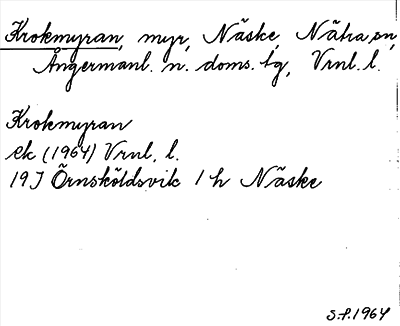 Krokmyran, myr, Näske, Nätra sn,
Ångermanl. n. doms. tg, Vrnl. l.
Krokmyran
ek (1964) Vrnl. l.
19J Örnsköldsvik 1 h Näske
S.P. 1964